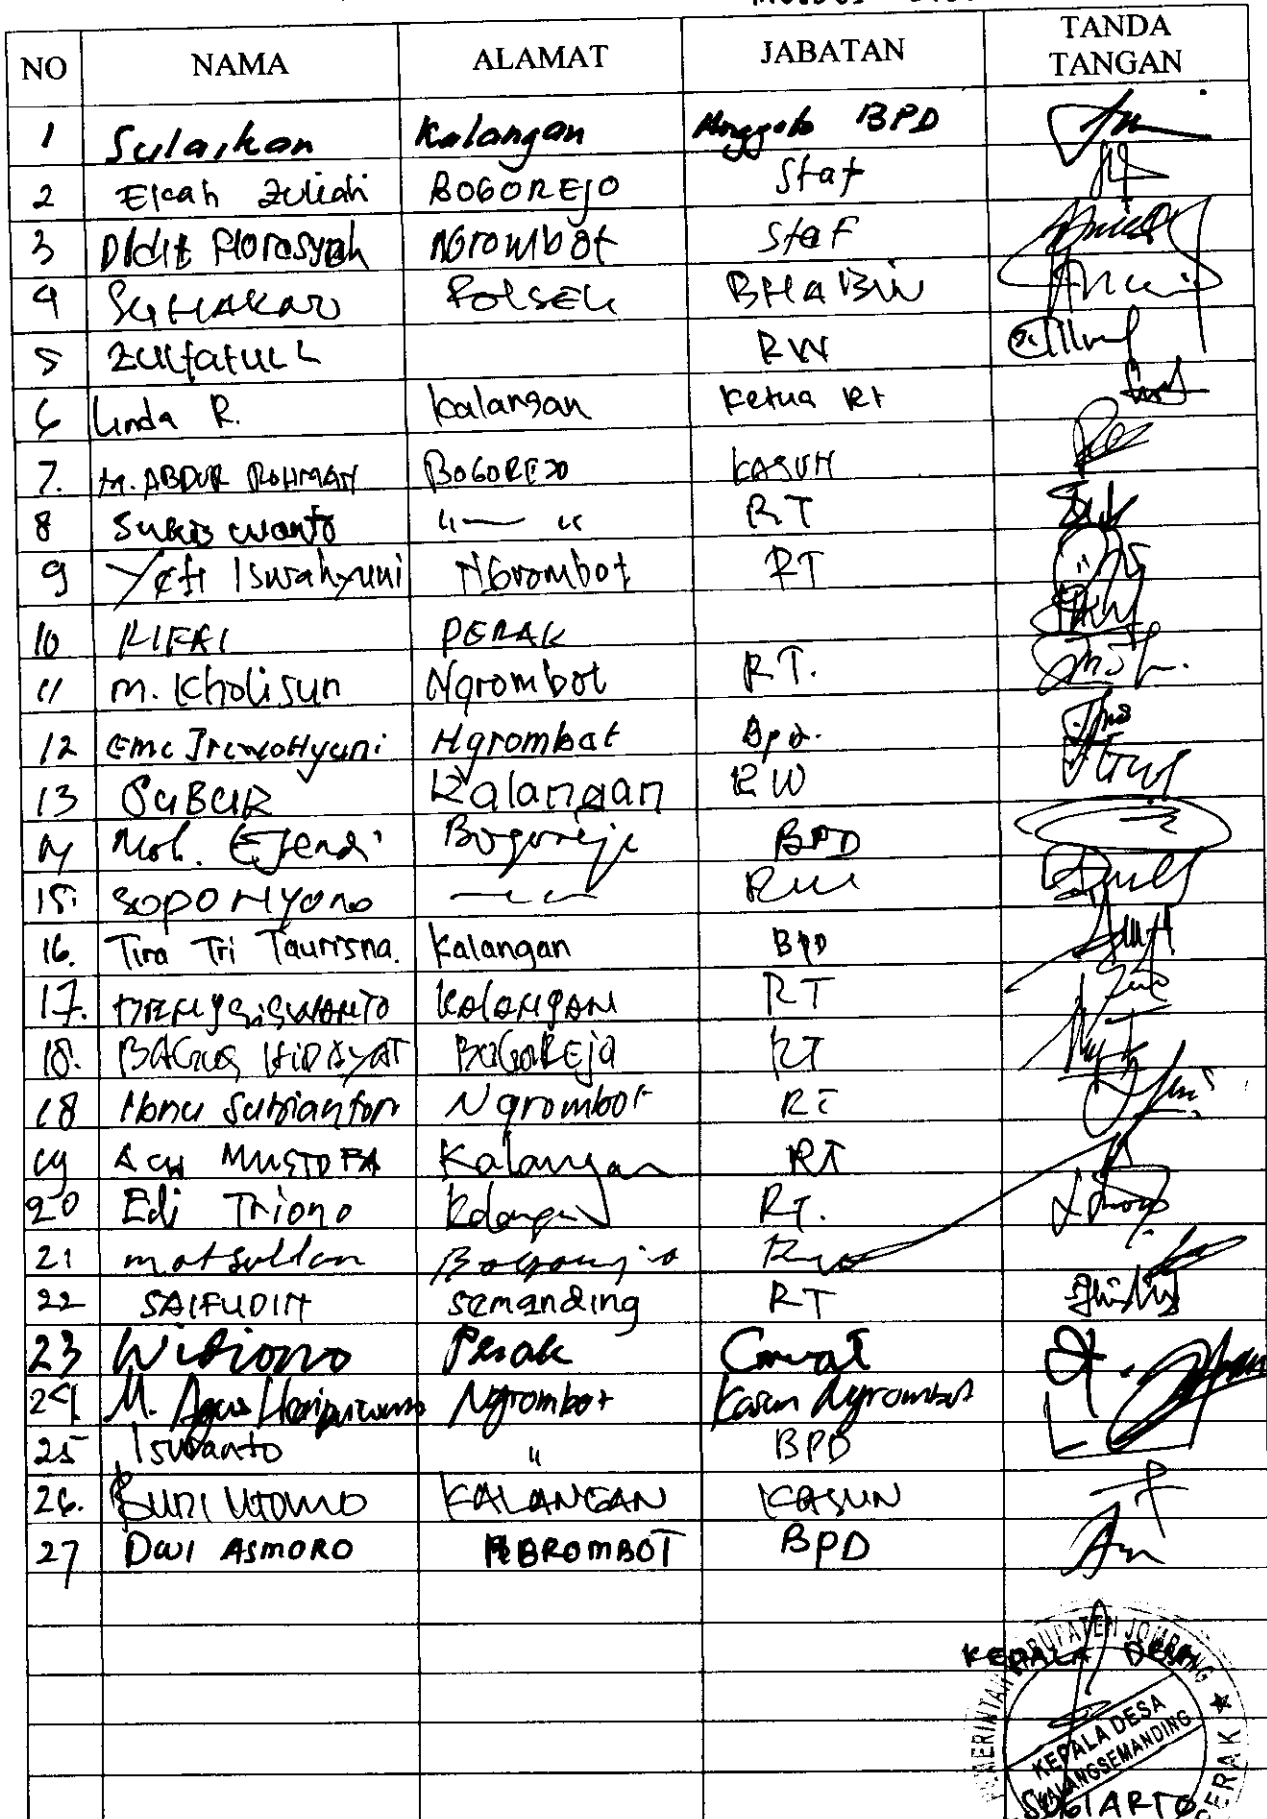 NO NAMA ALAMAT JABATAN TANDA TANGAN
1 Sulaikan Kalangan Anggota BPD
2 Elcah Zuliah BOGOREJO Staf
3 Didit Florasyah NGrombot staF
4 SUHAKAR POLSEK BHABIN
5 Zulfatul L RW
6 Linda R. kalangan Ketua Rt
7. M. ABDUR ROHMAN BOGOREJO KASUN
8 Sukis wanto "— " RT
9 Yeti Isurahyuni NGrombot RT
10 RIFAI PERAK
11 M. Kholisun Ngrombot RT.
12 Ngrombat Bpd.
13 SUBUR Kalangan RW
14 Moh. Efendi Bogorejo BPD
15. SOPONYONO RW
16. Tira Tri Taurisna. Kalangan BPD
17. KALANGAN RT
18. BAGUS HIDAYAT BOGOREJO RT
18 Ngrombot RT
19 ACH MUSTOFA Kalangan RT
20 Edi Triono Kalangan RT.
21 matsultan
22 SAIFUDIN semanding RT
23 Widiono Perak Camat
24. M. Agus Ngrombot Kasun Ngrombot
25 Iswanto " BPD
26. BUDI UTOMO KALANGAN KASUN
27 DWI ASMORO NGROMBOT BPD
KEPALA DESA
KABUPATEN JOMBANG
KEPALA DESA
KALANGSEMANDING
SUGIARTO